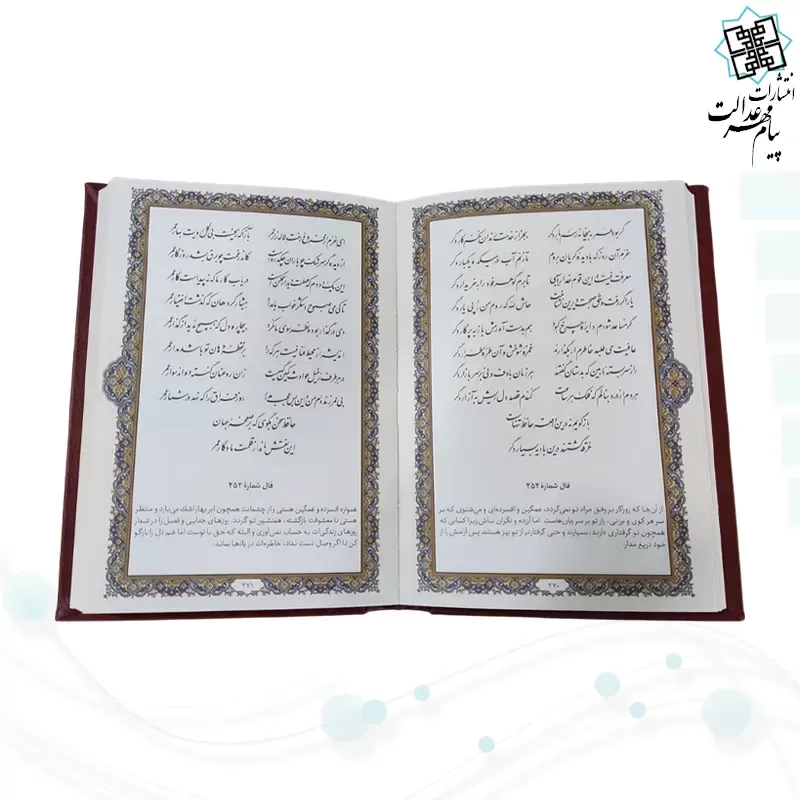 انتشارات
پیام مهر عدالت
گر بود عمر به میخانه رسم بار دگر بجز از خدمت رندان نکنم کار دگر
خرم آن روز که با دیده گریان بروم تا زنم آب در میکده یک بار دگر
معرفت نیست در این قوم خدا را سببی تا برم گوهر خود را به خریدار دگر
یار اگر رفت و حق صحبت دیرین نشناخت حاش لله که روم من ز پی یار دگر
گر مساعد شودم دایره چرخ کبود هم به دست آورمش باز به پرگار دگر
عافیت می‌طلبد خاطرم ار بگذارند غمزه شوخش و آن طره طرار دگر
راز سربسته ما بین که به دستان گفتند هر زمان با دف و نی بر سر بازار دگر
هر دم از درد بنالم که فلک هر ساعت کندم قصد دل ریش به آزار دگر
بازگویم نه در این واقعه حافظ تنهاست
غرقه گشتند در این بادیه بسیار دگر
فال شمارهٔ ۲۵۲
از آن‌جا که روزگار بر وفق مراد تو نمی‌گردد، غمگین و افسرده‌ای و می‌شنوی که بر
سر هر کوی و برزنی، راز تو بر سر زبان‌هاست. اما آزرده و نگران نباش زیرا کسانی که
همچون تو گرفتاری دارند، بسیارند و حتی گرفتارتر از تو نیز هستند پس آرامش را از
خود دریغ مدار.
۲۷۰
ای خرم از فروغ رخت لاله زار عمر بازآ که ریخت بی گل رویت بهار عمر
از دیده گر سرشک چو باران چکد رواست کاندر غمت چو برق بشد روزگار عمر
این یک دو دم که مهلت دیدار ممکن است دریاب کار ما که نه پیداست کار عمر
تا کی می صبوح و شکرخواب بامداد هشیار گرد هان که گذشت اختیار عمر
دی در گذار بود و نظر سوی ما نکرد بیچاره دل که هیچ ندید از گذار عمر
اندیشه از محیط فنا نیست هر که را بر نقطه دهان تو باشد مدار عمر
در هر طرف ز خیل حوادث کمین‌گهیست زان رو عنان گسسته دواند سوار عمر
بی عمر زنده‌ام من و این بس عجب مدار روز فراق را که نهد در شمار عمر
حافظ سخن بگوی که بر صفحه جهان
این نقش ماند از قلمت یادگار عمر
فال شمارهٔ ۲۵۳
همواره افسرده و غمگین هستی و از چشمانت همچون ابر بهار اشک می‌بارد و منتظر
هستی تا معشوقت بازگشته، همنشین تو گردد. روزهای جدایی و فصل را در شمار
روزهای زندگی‌ات به حساب نمی‌آوری و البته که حق با توست اما غم دل را بازگو
کن تا اگر وصال دست نداد، خاطره‌ات در یادها بماند.
۲۷۱